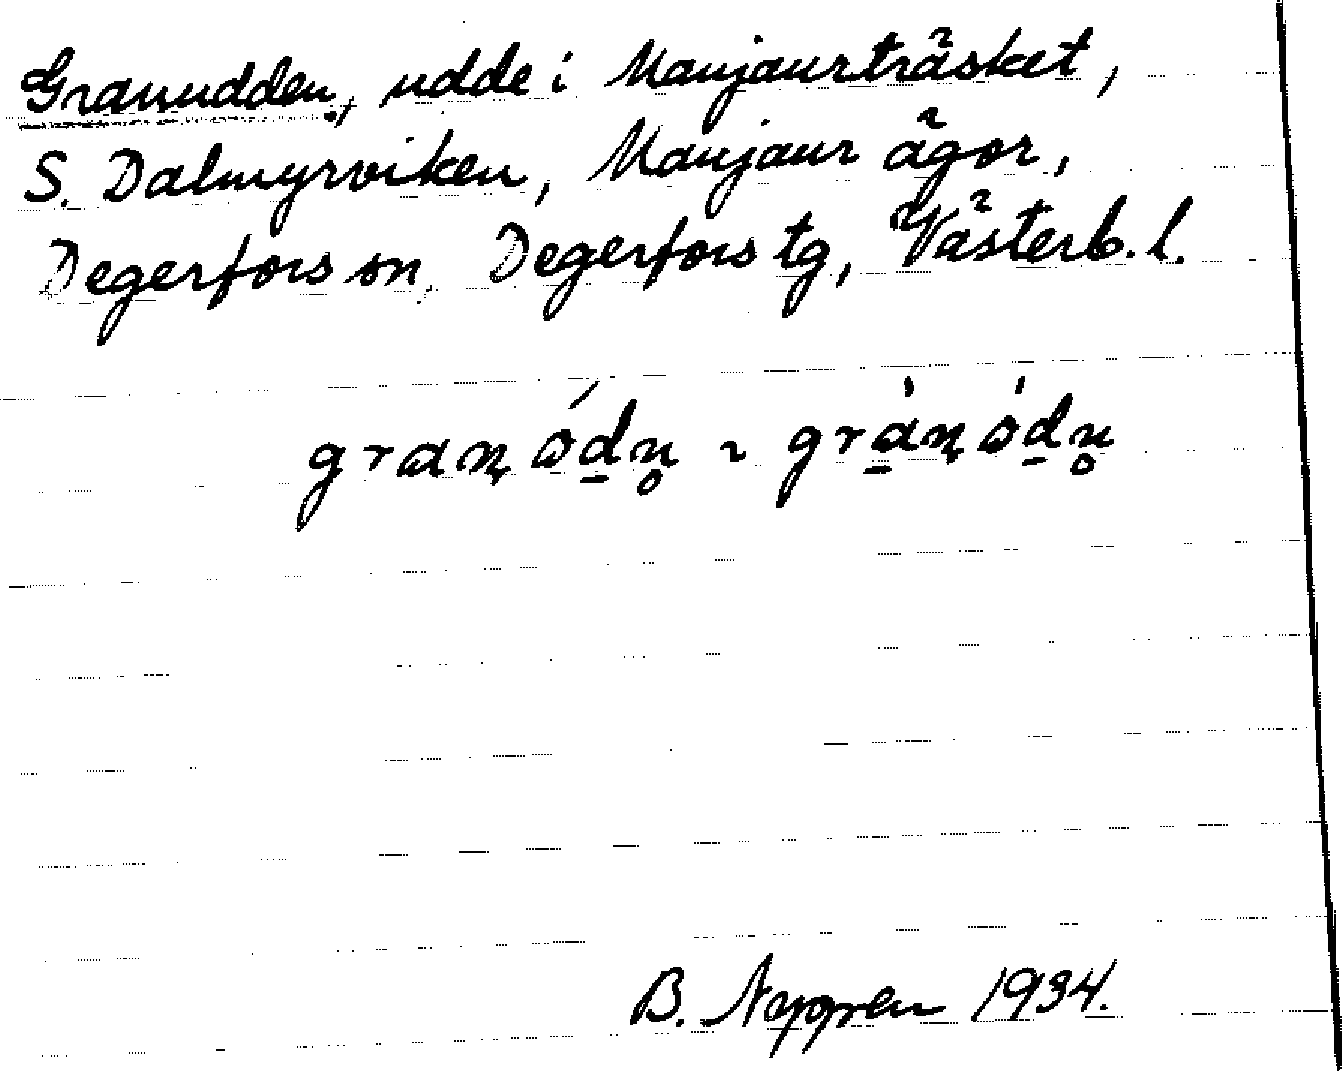 Granudden, udde i Manjaurträsket,
S. Dalmyrviken, Manjaur ägor,
Degerfors sn, Degerfors tg, Västerb. l.
B. Nygren 1934.